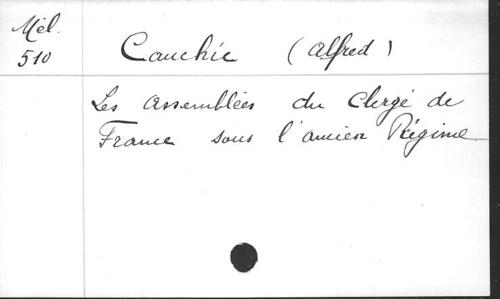 Mél.
510
Cauchie (Alfred)
Les Assemblées du Clergé de
France sous l'ancien Régime